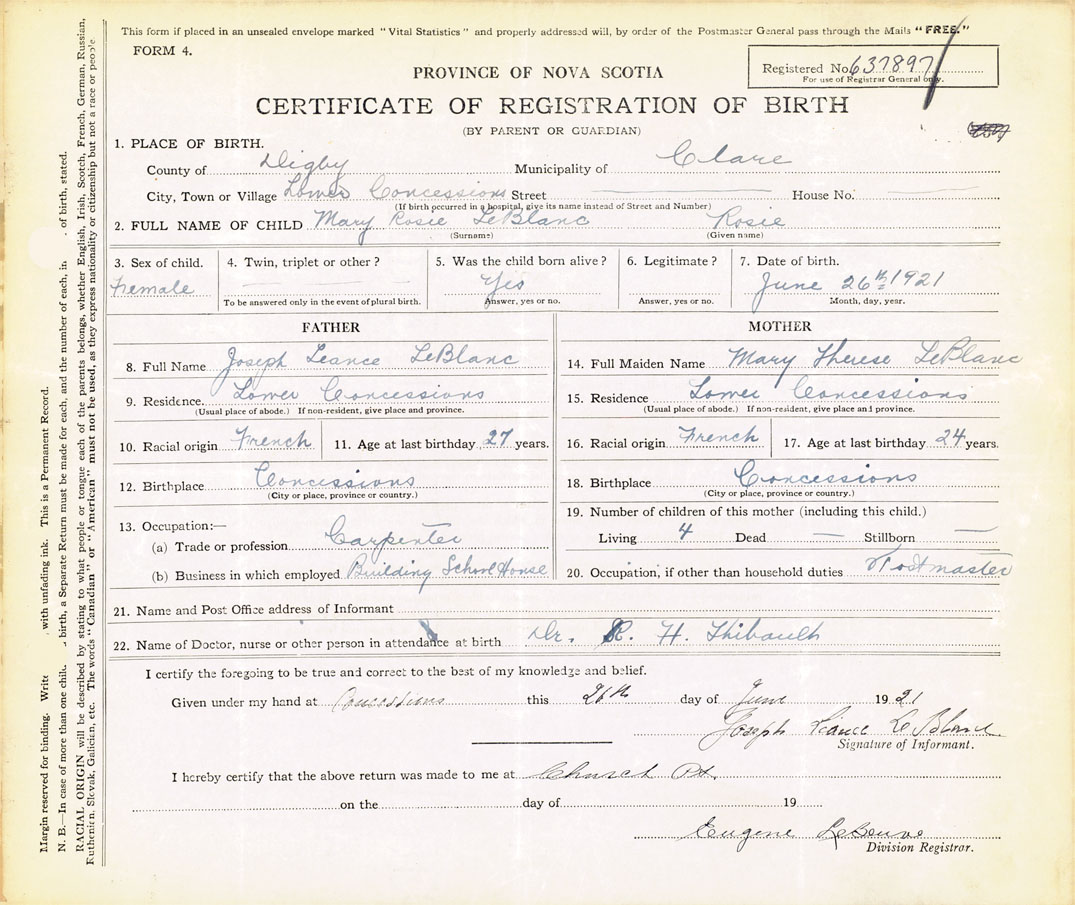 This form if placed in an unsealed envelope marked "Vital Statistics" and properly addressed will, by order of the Postmaster General pass through the Mails "FREE."
FORM 4.
Registered No. 637897
For use of Registrar General only.
PROVINCE OF NOVA SCOTIA
CERTIFICATE OF REGISTRATION OF BIRTH
(BY PARENT OR GUARDIAN)
1. PLACE OF BIRTH.
County of Digby Municipality of Clare
City, Town or Village Lower Concessions Street House No.
(If birth occurred in a hospital, give its name instead of Street and Number)
2. FULL NAME OF CHILD Mary Rosie LeBlanc Rosie
(Surname) (Given name)
3. Sex of child. 4. Twin, triplet or other? 5. Was the child born alive? 6. Legitimate? 7. Date of birth.
Female Yes June 26th 1921
To be answered only in the event of plural birth. Answer, yes or no. Answer, yes or no. Month, day, year.
FATHER
8. Full Name Joseph Leance LeBlanc
9. Residence. Lower Concessions
(Usual place of abode.) If non-resident, give place and province.
10. Racial origin French 11. Age at last birthday 27 years.
12. Birthplace Concessions
(City or place, province or country.)
13. Occupation:—
(a) Trade or profession Carpenter
(b) Business in which employed Building School House
MOTHER
14. Full Maiden Name Mary Therese LeBlanc
15. Residence Lower Concessions
(Usual place of abode.) If non-resident, give place and province.
16. Racial origin French 17. Age at last birthday 24 years.
18. Birthplace Concessions
(City or place, province or country.)
19. Number of children of this mother (including this child.)
Living 4 Dead — Stillborn —
20. Occupation, if other than household duties Postmaster
21. Name and Post Office address of Informant
22. Name of Doctor, nurse or other person in attendance at birth Dr. R. H. Thibault
I certify the foregoing to be true and correct to the best of my knowledge and belief.
Given under my hand at Concessions this 26th day of June 1921
Joseph Léance LeBlanc
Signature of Informant.
I hereby certify that the above return was made to me at Church Pt.
on the day of 19
Eugene
Division Registrar.
Margin reserved for binding. Write with unfading ink. This is a Permanent Record.
N. B.—In case of more than one child birth, a Separate Return must be made for each, and the number of each, in of birth, stated.
RACIAL ORIGIN will be described by stating to what people or tongue each of the parents belongs, whether English, Irish, Scotch, French, German, Russian,
Ruthenian, Slovak, Galician, etc. The words "Canadian" or "American" must not be used, as they express nationality or citizenship but not a race or people.